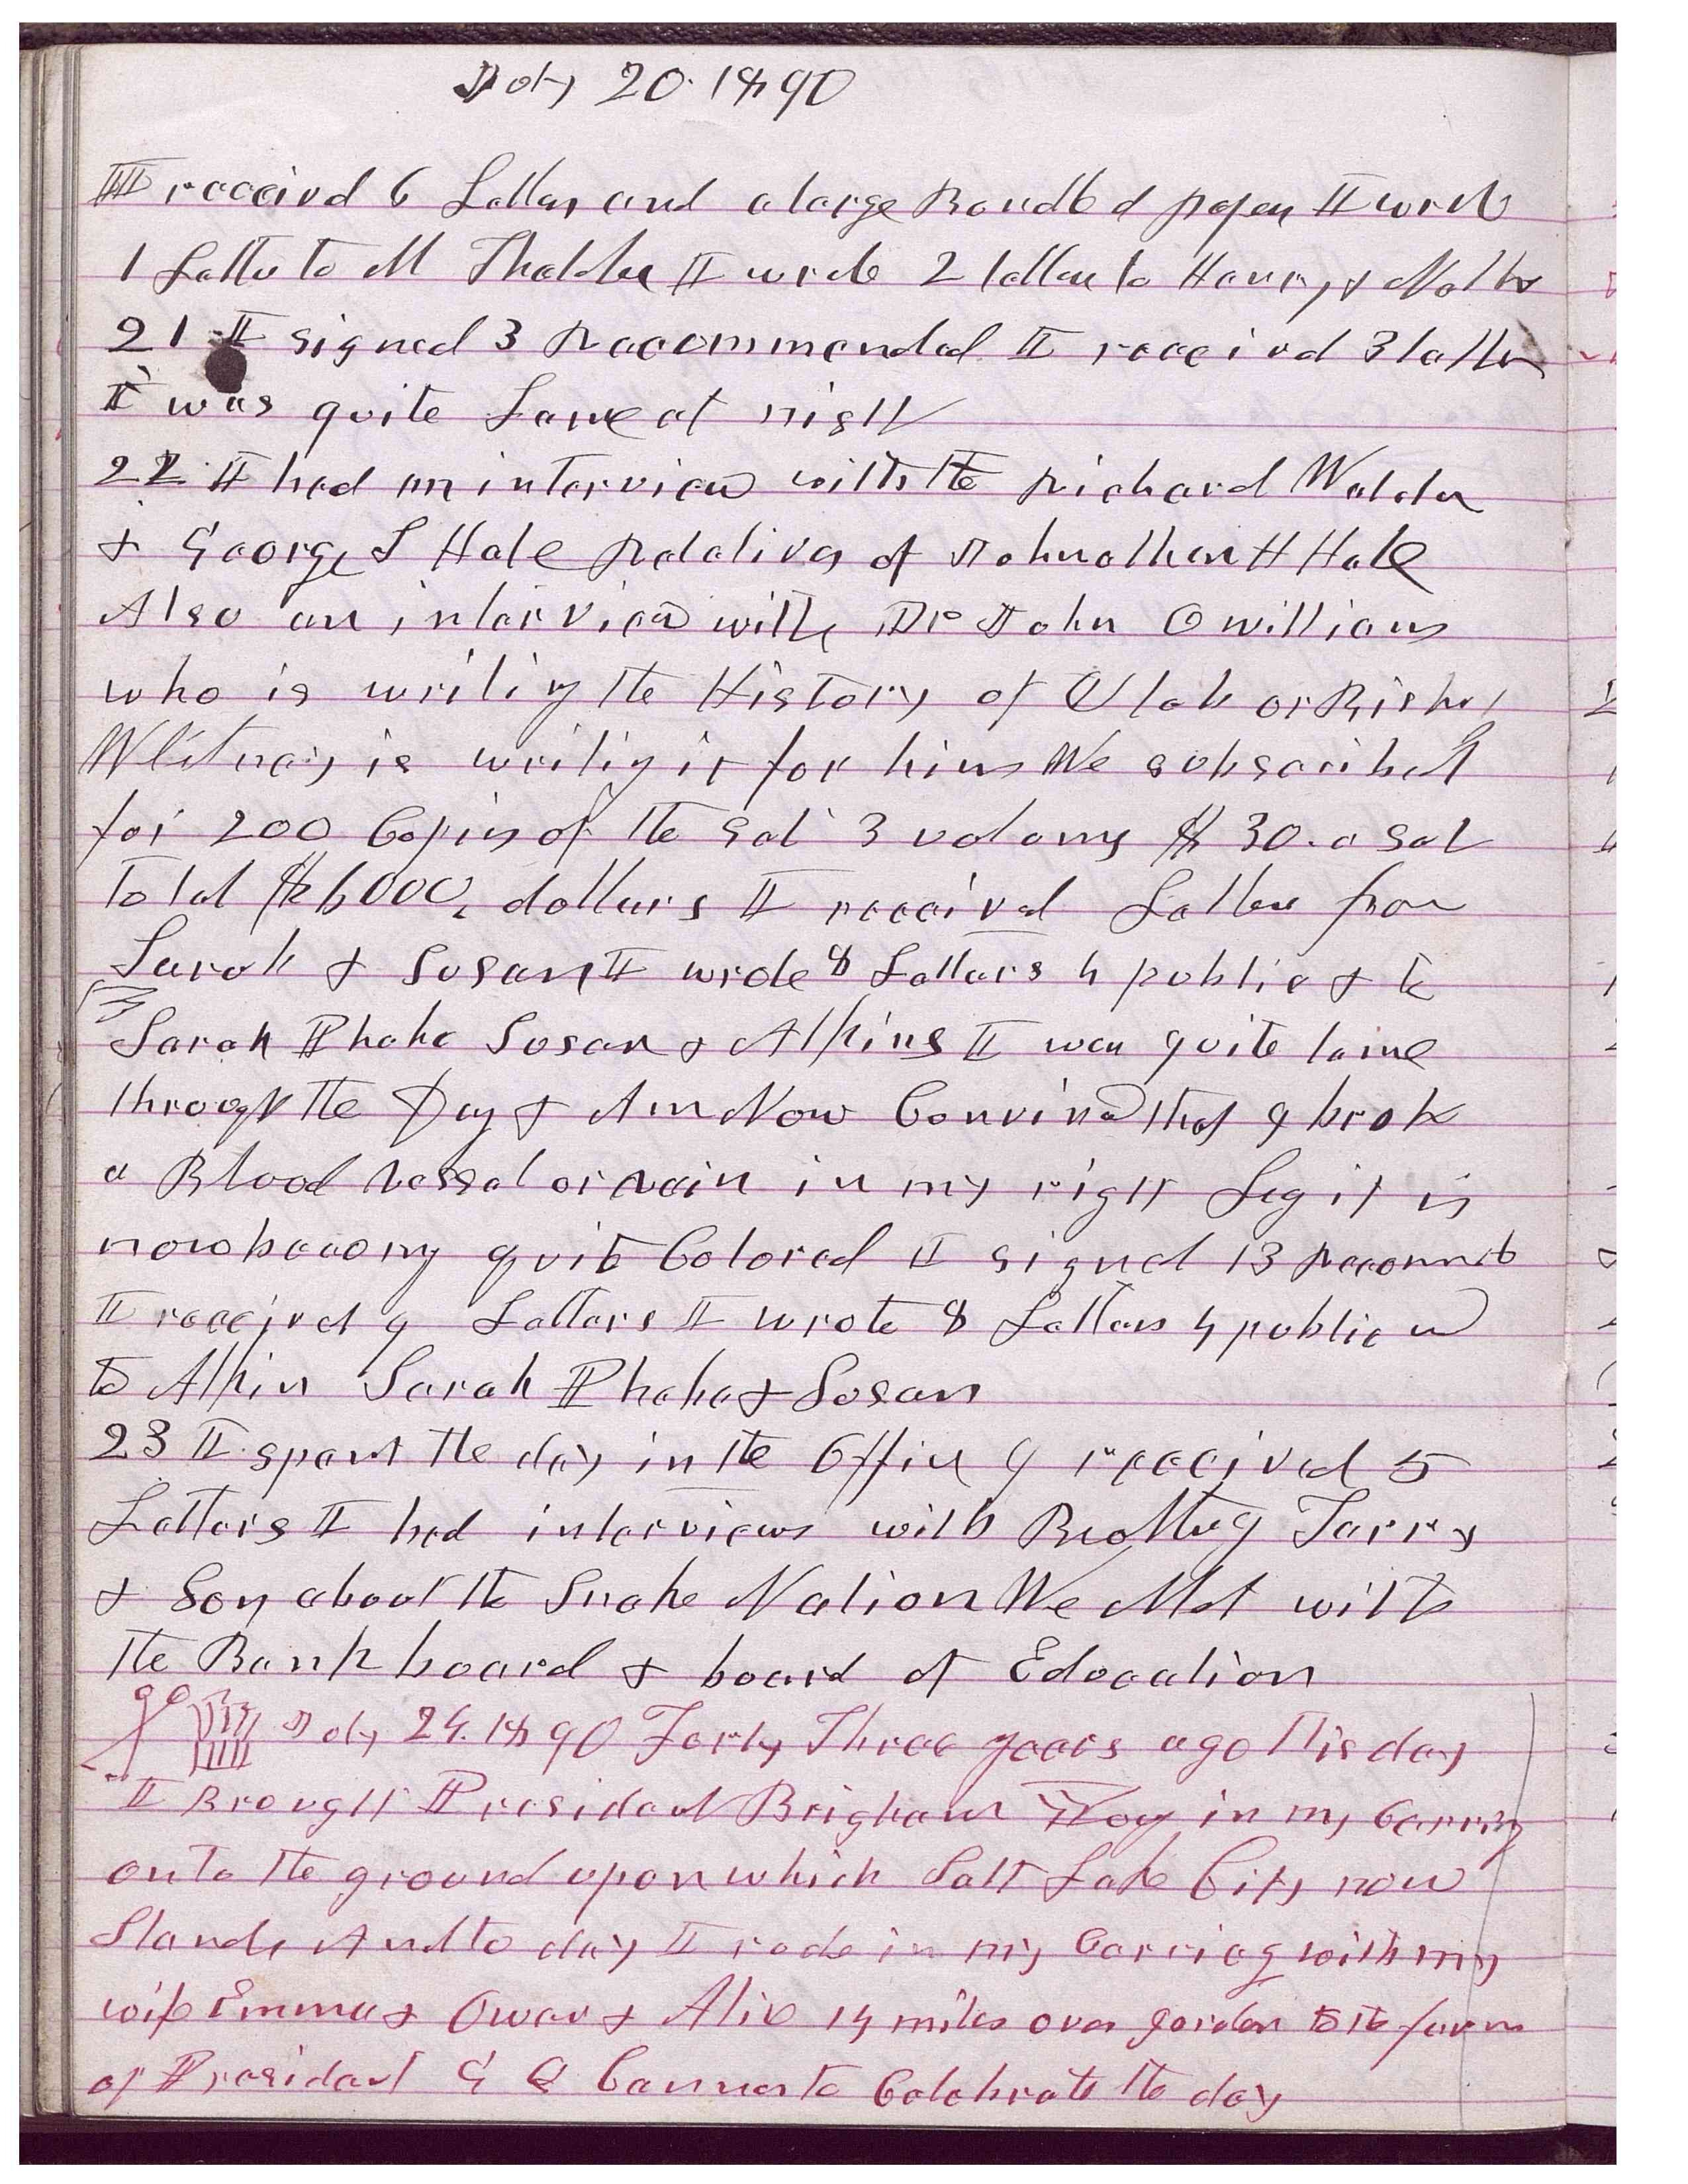 July 20. 1890
I received 6 Letters and a large Bundle of papers I wrote
1 Letter to M Thatcher I wrote 2 letters to Harry &
21 I signed 3 Recommended I received 3 letters
I was quite Lame at night
22 I had an interview with the Richard Walden
& George L Hale Relatives of Johnathan H Hale
Also an interview with Dr John O Williams
who is writing the History of Utah or Bishop
Whitney is writing it for him We subscribed
for 200 Copies of the Set 3 volums $30. a set
total $6000, dollars I received Letters from
Sarah & Susan I wrote 8 Letters 4 public & to
Sarah Phebe Susan & Alpins I was quite lame
through the Day & Am Now Convinced that I broke
a Blood vessel or vein in my right Leg it is
now becoming quite Colored I signed 13 Recommends
I received 9 Letters I wrote 8 Letters 4 public
to Alpin Sarah Phebe & Susan
23 I spent the day in the Office I received 5
Letters I had interviews with Brother Terry
& Son about the Snake Nation We Met with
the Bank board & board of Education
July 24. 1890 Forty Three years ago this day
I Brought President Brigham Yong in my Carriag
onto the ground upon which Salt Lake City now
Stands And to day I rode in my Carriag with my
wife Emma & Owen & Alice 14 miles over Jordan to the farm
of President G Q Cannon to Celebrate the day